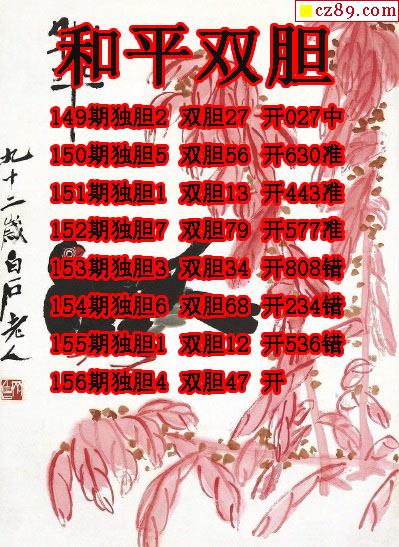 cz89.com
和平双胆
149期独胆2 双胆27 开027中
150期独胆5 双胆56 开630准
151期独胆1 双胆13 开443准
152期独胆7 双胆79 开577准
153期独胆3 双胆34 开808错
154期独胆6 双胆68 开234错
155期独胆1 双胆12 开536错
156期独胆4 双胆47 开
九十二岁白石老人